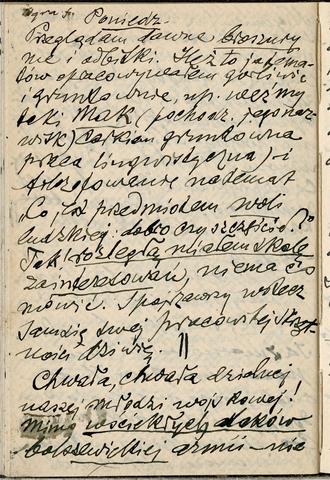 Poniedz.
Przeglądam dawne broszury
me i odbitki. Ileż to jatema-
tów opracowywałem gorliwie
i gruntownie, np. weźmy
taki Mak (pochodz. jego naz-
wisk) całkiem gruntowna
praca lingwistyczna) - i
filozofowanie na temat
„Co jest przedmiotem woli
ludzkiej: dobro czy szczęście?"
Tak rozległą miałem skalę
zainteresowań, niema co
mówić. Spojrzawszy wstecz
sam się swej pracowitej
dziwię. ||
Chwała, chwała dzielnej
naszej młodzi wojskowej!
Mimo wściekłych ataków
bolszewickiej armii - nie